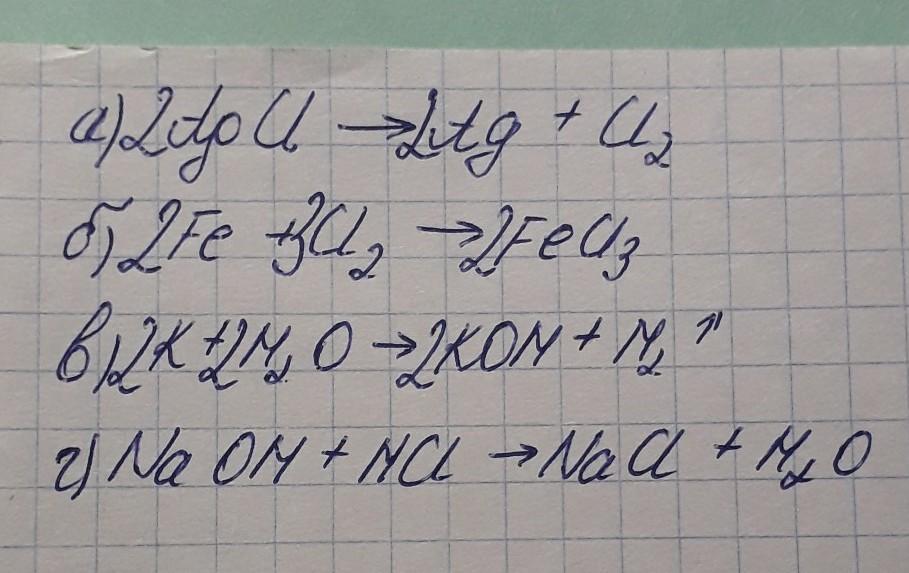 а) 2AgCl → 2Ag + Cl₂
б) 2Fe + 3Cl₂ → 2FeCl₃
в) 2K + 2H₂O → 2KOH + H₂ ↑
г) NaOH + HCl → NaCl + H₂O